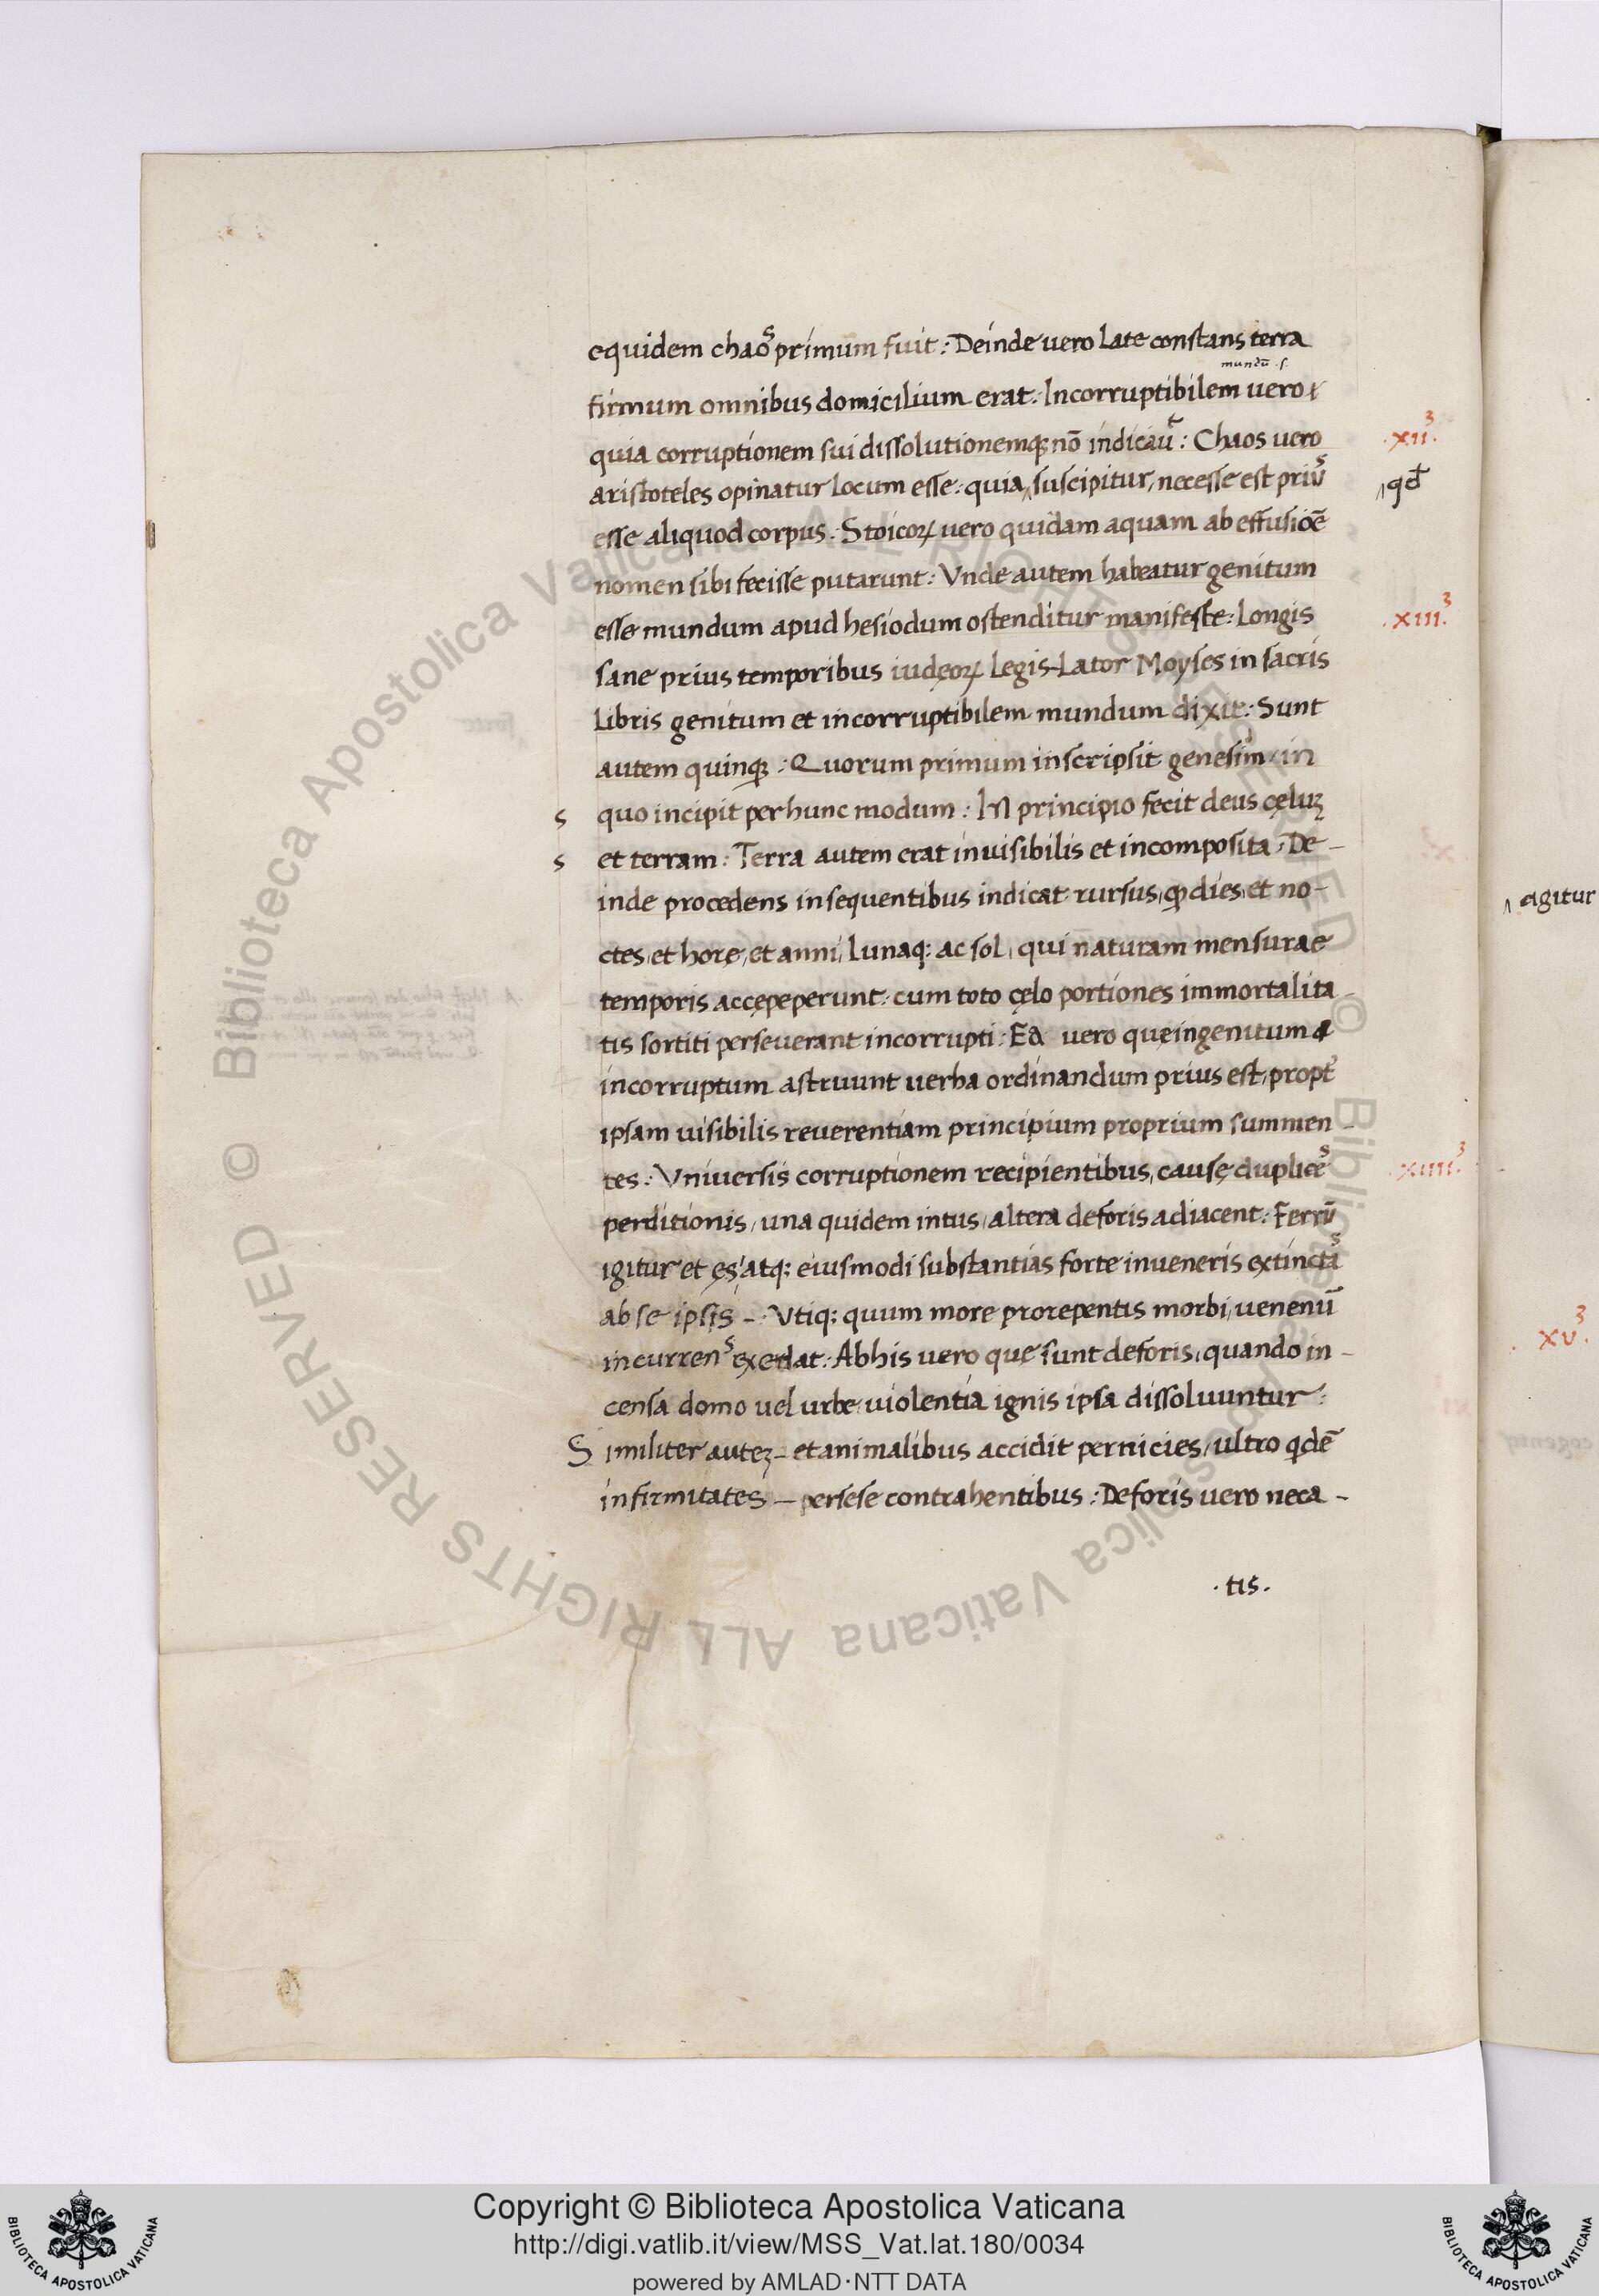 equidem chaoˢ primum fuit : Deinde vero late constans terra
mundū .s.
firmum omnibus domicilium erat : Incorruptibilem vero
quia corruptionem sui dissolutionemq; nō indicauͭ : Chaos vero
.xii³.
aristoteles opinatur locum esse : quia ʌ suscipitur, necesse est priuˢ
ʌ qd̄
esse aliquod corpus . Stoicoꝝ vero quidam aquam ab effusioē
nomen sibi fecisse putarunt : Vnde autem habeatur genitum
esse mundum apud hesiodum ostenditur manifeste : Longis
.xiii³.
sane prius temporibus iudęoꝝ Legis-Lator Moyses in sacris
Libris genitum et incorruptibilem mundum dixit : Sunt
autem quinq; : Quorum primum inscripsit genesim in
s quo incipit per hunc modum : IN principio fecit deus cęluꝫ
s et terram : Terra autem erat inuisibilis et incomposita : De-
inde procedens in sequentibus indicat rursus, ꝙ dies, et no-
ʌ agitur
ctes, et horę, et anni, Lunaq: ac sol, qui naturam mensurae
temporis accępeperunt : cum toto cęlo portiones immortalita-
tis sortiti perseuerant incorrupti : EA vero quęingenitum &
incorruptum astruunt verba ordinandum prius est, propt̄
ipsam uisibilis reuerentiam principium proprium summen-
tes : Vniuersis corruptionem recipientibus, causę dupliceˢ
.xiiii³.
perditionis, una quidem intus, altera deforis adiacent : Ferrū
igitur et ęs atq: eiusmodi substantias forte inueneris extinctaˢ
ab se ipsis - Vtiq: quum more prorepentis morbi, venenū
.xv³.
incurrenˢ exedat : Ab his vero que sunt deforis, quando in-
censa domo vel urbe, uiolentia ignis ipsa dissoluuntur :
Similiter auteꝫ - et animalibus accidit pernicies, ultro qdē
infirmitates - per sese contrahentibus : Deforis vero neca-
. tis .
Copyright © Biblioteca Apostolica Vaticana
http://digi.vatlib.it/view/MSS_Vat.lat.180/0034
powered by AMLAD·NTT DATA
BIBLIOTECA APOSTOLICA VATICANA
BIBLIOTECA APOSTOLICA VATICANA
© Biblioteca Apostolica Vaticana ALL RIGHTS RESERVED © Biblioteca Apostolica Vaticana ALL RIGHTS RESERVED